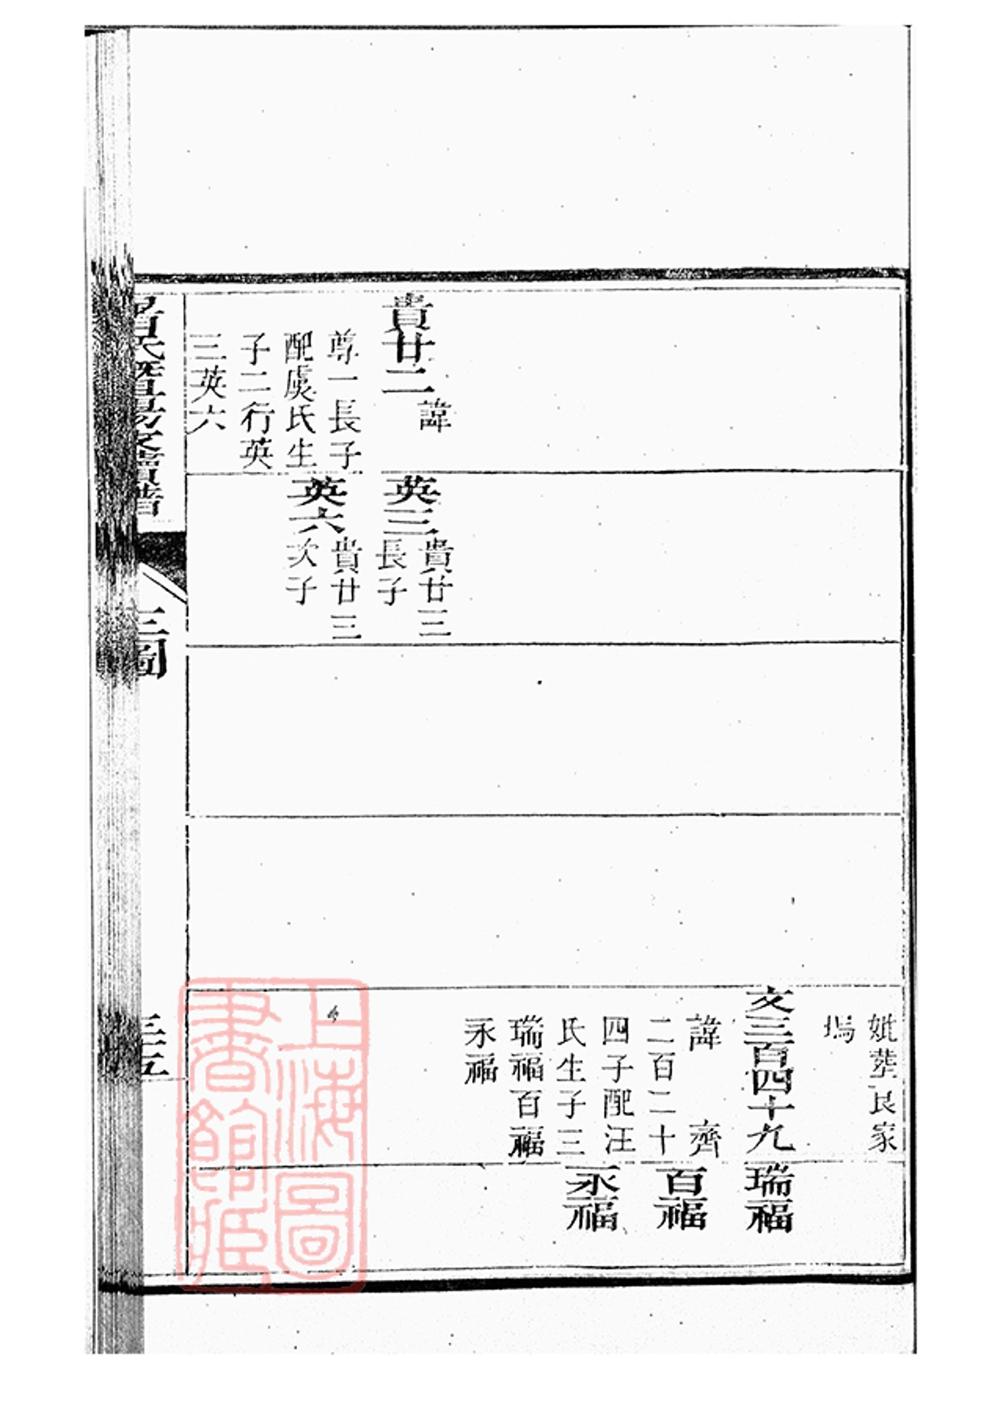 貴廿二
諱
尊一長子
配虞氏生
子二行英
三英六
英三
貴廿三
長子
英六
貴廿三
次子
妣葬良家
塢
文三百四十九
諱 齊
二百二十
四子配汪
氏生子三
瑞福百福
永福
瑞福
百福
永福
三圖
三五
上海圖
書館藏